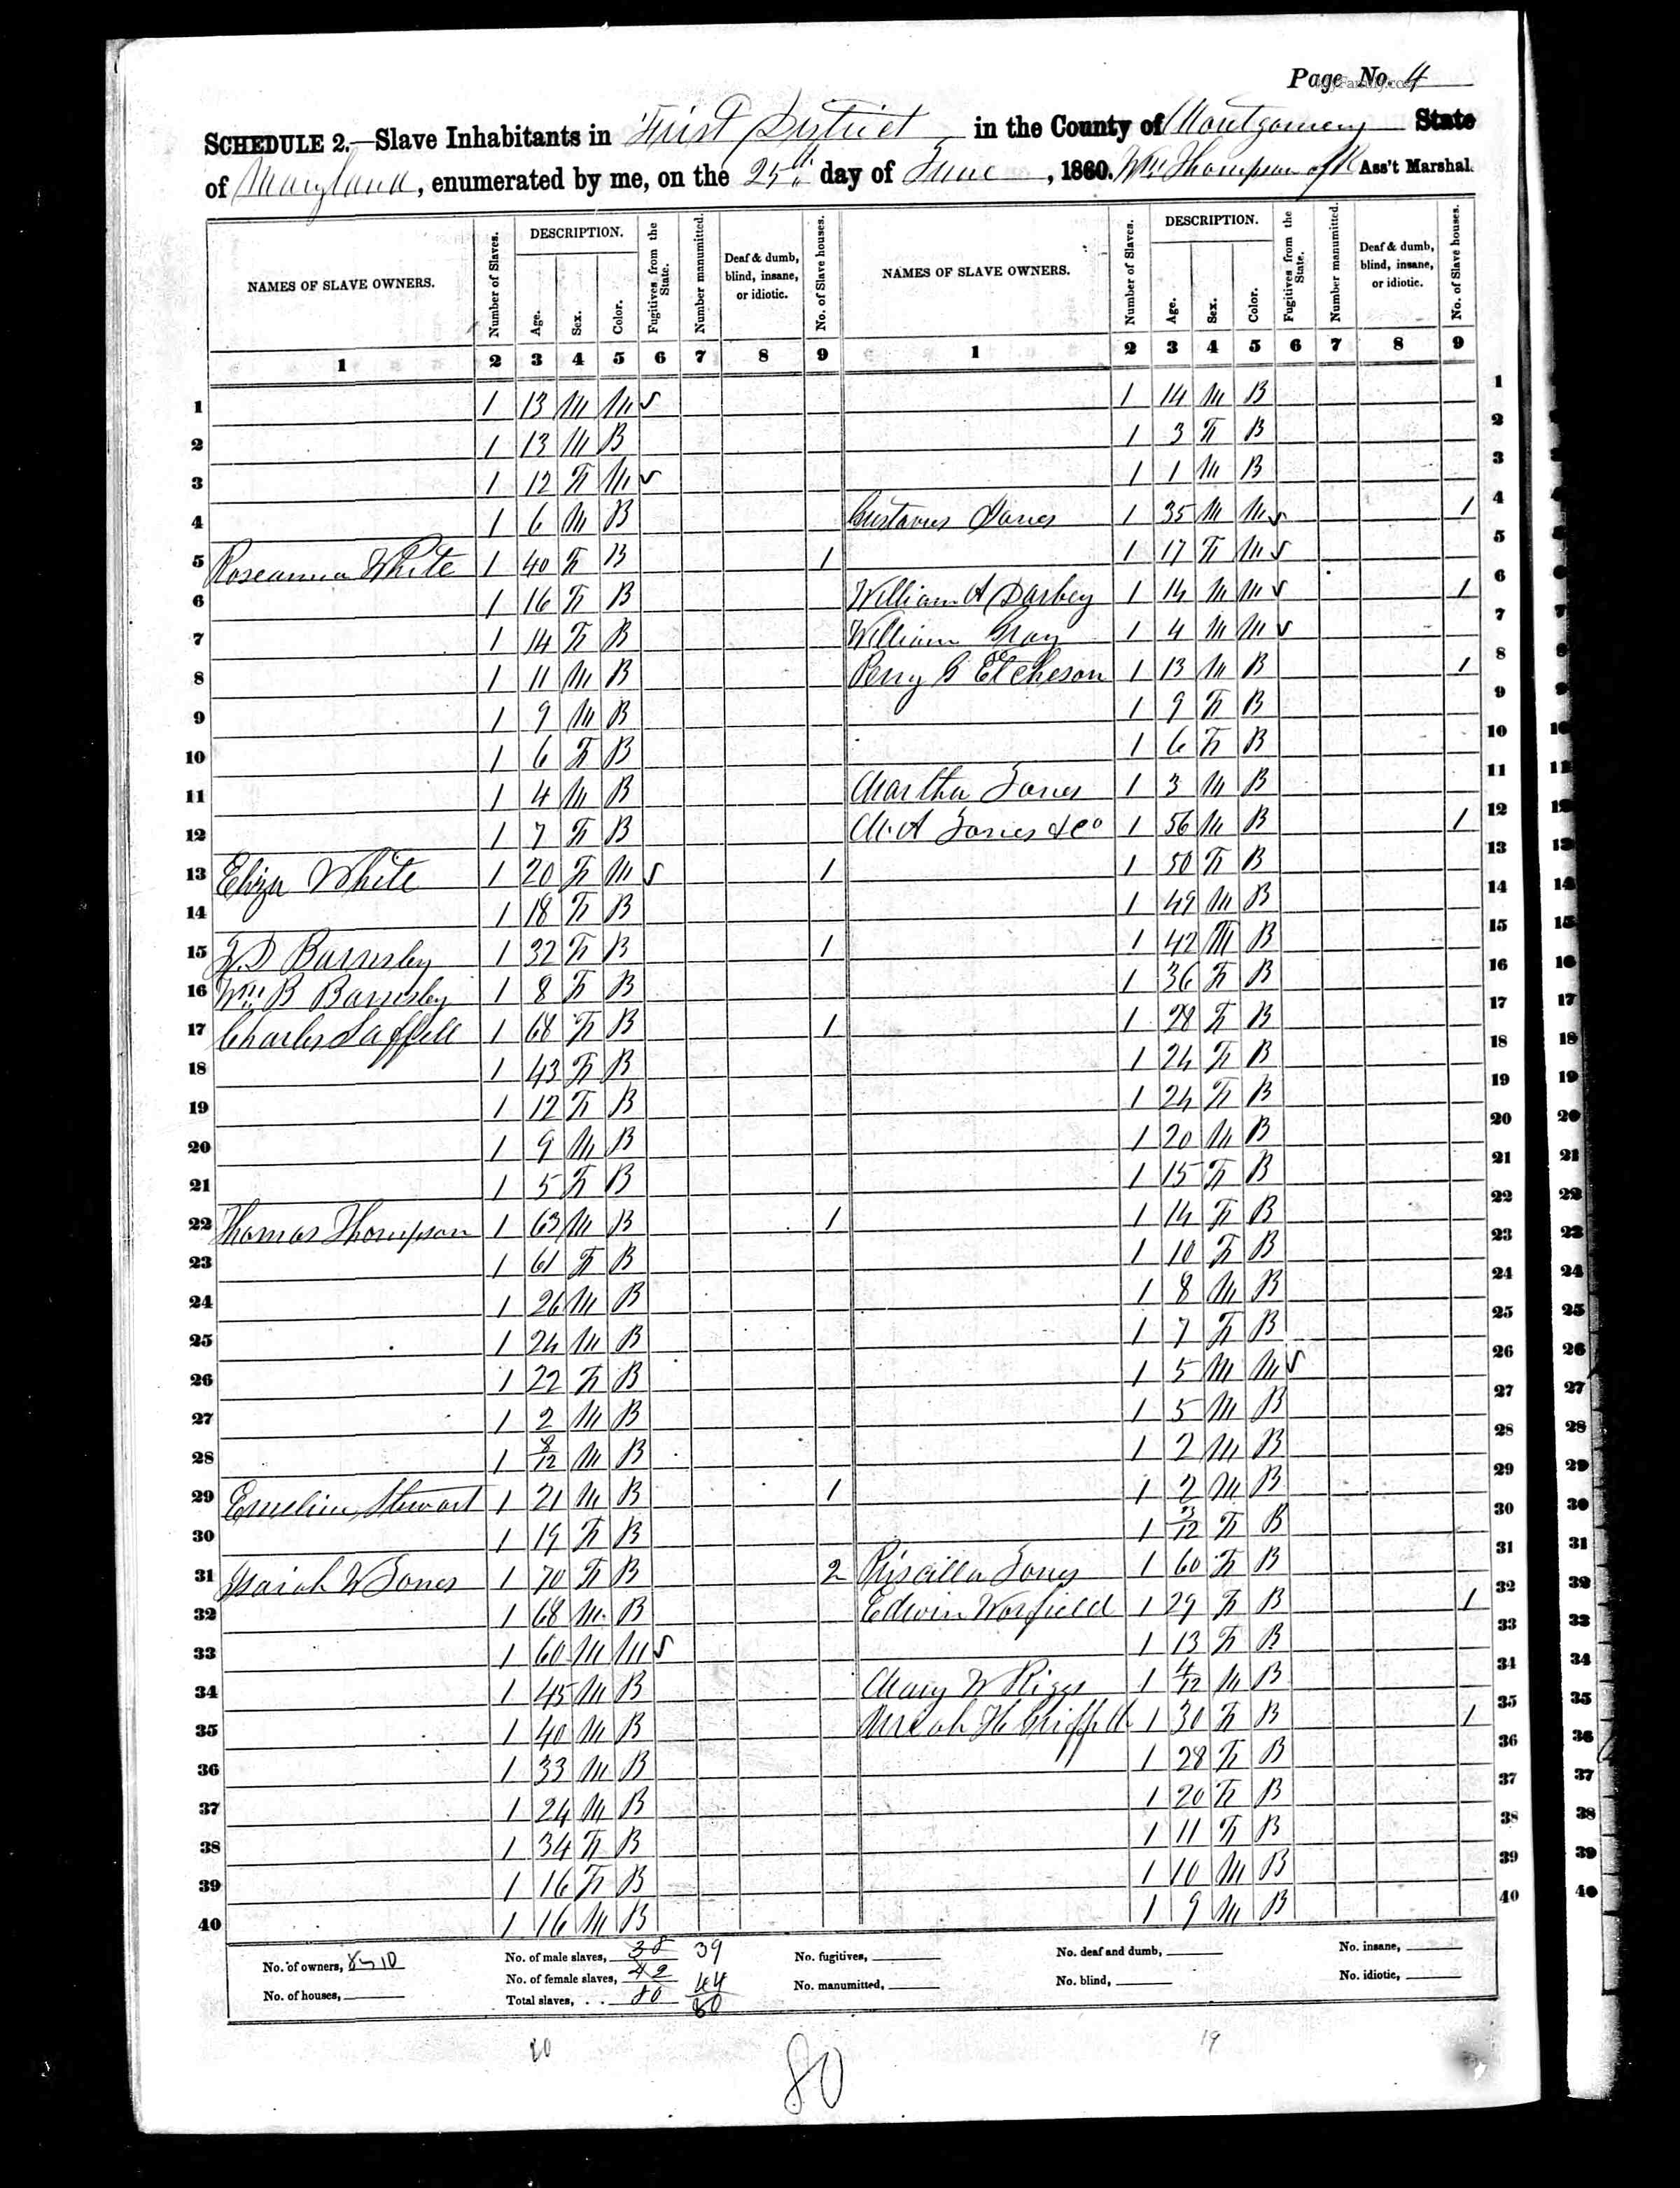 Page No. 4
SCHEDULE 2.—Slave Inhabitants in First District in the County of Montgomery State
of Maryland, enumerated by me, on the 25th day of June, 1860. Wm Thompson of R Ass't Marshal.
NAMES OF SLAVE OWNERS. Number of Slaves. DESCRIPTION. Age. Sex. Color. Fugitives from the State. Number manumitted. Deaf & dumb, blind, insane, or idiotic. No. of Slave houses. NAMES OF SLAVE OWNERS. Number of Slaves. DESCRIPTION. Age. Sex. Color. Fugitives from the State. Number manumitted. Deaf & dumb, blind, insane, or idiotic. No. of Slave houses.
1 2 3 4 5 6 7 8 9 1 2 3 4 5 6 7 8 9
1 1 13 M M ✓ 1 14 M B 1
2 1 13 M B 1 3 F B 2
3 1 12 F M ✓ 1 1 M B 3
4 1 6 M B Gustavus Jones 1 35 M M ✓ 1 4
5 Roseanna White 1 40 F B 1 1 17 F M ✓ 5
6 1 16 F B William A Darbey 1 14 M M ✓ 1 6
7 1 14 F B William Gray 1 4 M M ✓ 7
8 1 11 M B Perry G Etcheson 1 13 M B 1 8
9 1 9 M B 1 9 F B 9
10 1 6 F B 1 6 F B 10
11 1 4 M B Martha Jones 1 3 M B 11
12 1 7 F B M. A Jones & Co 1 56 M B 1 12
13 Eliza White 1 20 F M ✓ 1 1 50 F B 13
14 1 18 F B 1 49 M B 14
15 J. D Barnsley 1 32 F B 1 1 42 M B 15
16 Wm B Barnsley 1 8 F B 1 36 F B 16
17 Charles Saffell 1 68 F B 1 1 28 F B 17
18 1 43 F B 1 24 F B 18
19 1 12 F B 1 24 F B 19
20 1 9 M B 1 20 M B 20
21 1 5 F B 1 15 F B 21
22 Thomas Thompson 1 63 M B 1 1 14 F B 22
23 1 61 F B 1 10 F B 23
24 1 26 M B 1 8 M B 24
25 1 24 M B 1 7 F B 25
26 1 22 F B 1 5 M M ✓ 26
27 1 2 M B 1 5 M B 27
28 1 8/12 M B 1 2 M B 28
29 Emeline Stewart 1 21 M B 1 1 2 M B 29
30 1 19 F B 1 3/12 F B 30
31 Isaiah W Jones 1 70 F B 2 Priscilla Jones 1 60 F B 31
32 1 68 M B Edwin Warfield 1 29 F B 1 32
33 1 60 M M ✓ 1 13 F B 33
34 1 45 M B Mary W Riggs 1 4/12 M B 34
35 1 40 M B H Griffith 1 30 F B 1 35
36 1 33 M B 1 28 F B 36
37 1 24 M B 1 20 F B 37
38 1 34 F B 1 11 F B 38
39 1 16 F B 1 10 M B 39
40 1 16 M B 1 9 M B 40
No. of owners, 10 No. of male slaves, 38 39 No. fugitives, No. deaf and dumb, No. insane,
No. of houses, No. of female slaves, 42 No. manumitted, No. blind, No. idiotic,
Total slaves, . . 80 80
20 19
80